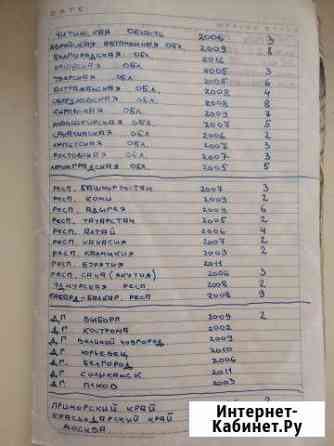 DATE
ЧИТИНСКАЯ ОБЛАСТЬ 2006 3
ЕВРЕЙСКАЯ АВТОНОМНАЯ ОБЛ. 2009 8
БЕЛГОРОДСКАЯ ОБЛ. 2016
ОБЛ. 2005 3
ТВЕРСКАЯ ОБЛ. 2005 6
АСТРАХАНСКАЯ ОБЛ. 2008 4
СВЕРДЛОВСКАЯ ОБЛ. 2008 8
КИРОВСКАЯ ОБЛ. 2009 7
НОВОСИБИРСКАЯ ОБЛ. 2007 5
САХАЛИНСКАЯ ОБЛ. 2006 2
ЛИПЕЦКАЯ ОБЛ. 2007 3
РОСТОВСКАЯ ОБЛ. 2007 3
ЛЕНИНГРАДСКАЯ ОБЛ. 2005 5
РЕСП. БАШКОРТОСТАН 2007 3
РЕСП. КОМИ 2009 2
РЕСП. АДЫГЕЯ 2009 6
РЕСП. ТАТАРСТАН 2005 2
РЕСП. АЛТАЙ 2006 4
РЕСП. ХАКАСИЯ 2007 2
РЕСП. КАЛМЫКИЯ 2009 2
РЕСП. БУРЯТИЯ 2011
РЕСП. САХА (ЯКУТИЯ) 2006 3
УДМУРТСКАЯ РЕСП 2008 2
КАБАРД-БАЛКАР. РЕСП 2008 9
ДГ ВЫБОРГ 2009 2
ДГ. КОСТРОМА 2002
ДГ. ВЕЛИКИЙ НОВГОРОД 2009
ДГ ЮРЬЕВЕЦ 2010
ДГ. БЕЛГОРОД 2006
ДГ. СОЛИКАМСК 2011
ДГ. ПСКОВ 2003
ПРИМОРСКИЙ КРАЙ
КРАСНОДАРСКИЙ КРАЙ
МОСКВА
Интернет-
Кабинет.Ру